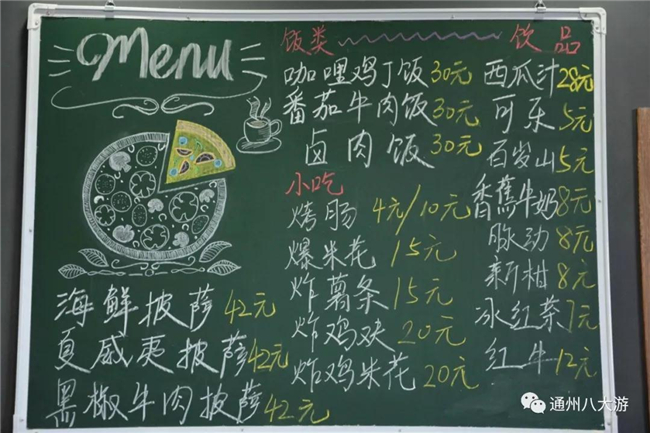 Menu
海鲜披萨 42元
夏威夷披萨 42元
黑椒牛肉披萨 42元
饭类
咖哩鸡丁饭 30元
番茄牛肉饭 30元
卤肉饭 30元
小吃
烤肠 4元/10元
爆米花 15元
炸薯条 15元
炸鸡块 20元
炸鸡米花 20元
饮品
西瓜汁 28元
可乐 5元
百岁山 5元
香蕉牛奶 8元
脉动 8元
新柑 8元
冰红茶 7元
红牛 12元
通州八大游